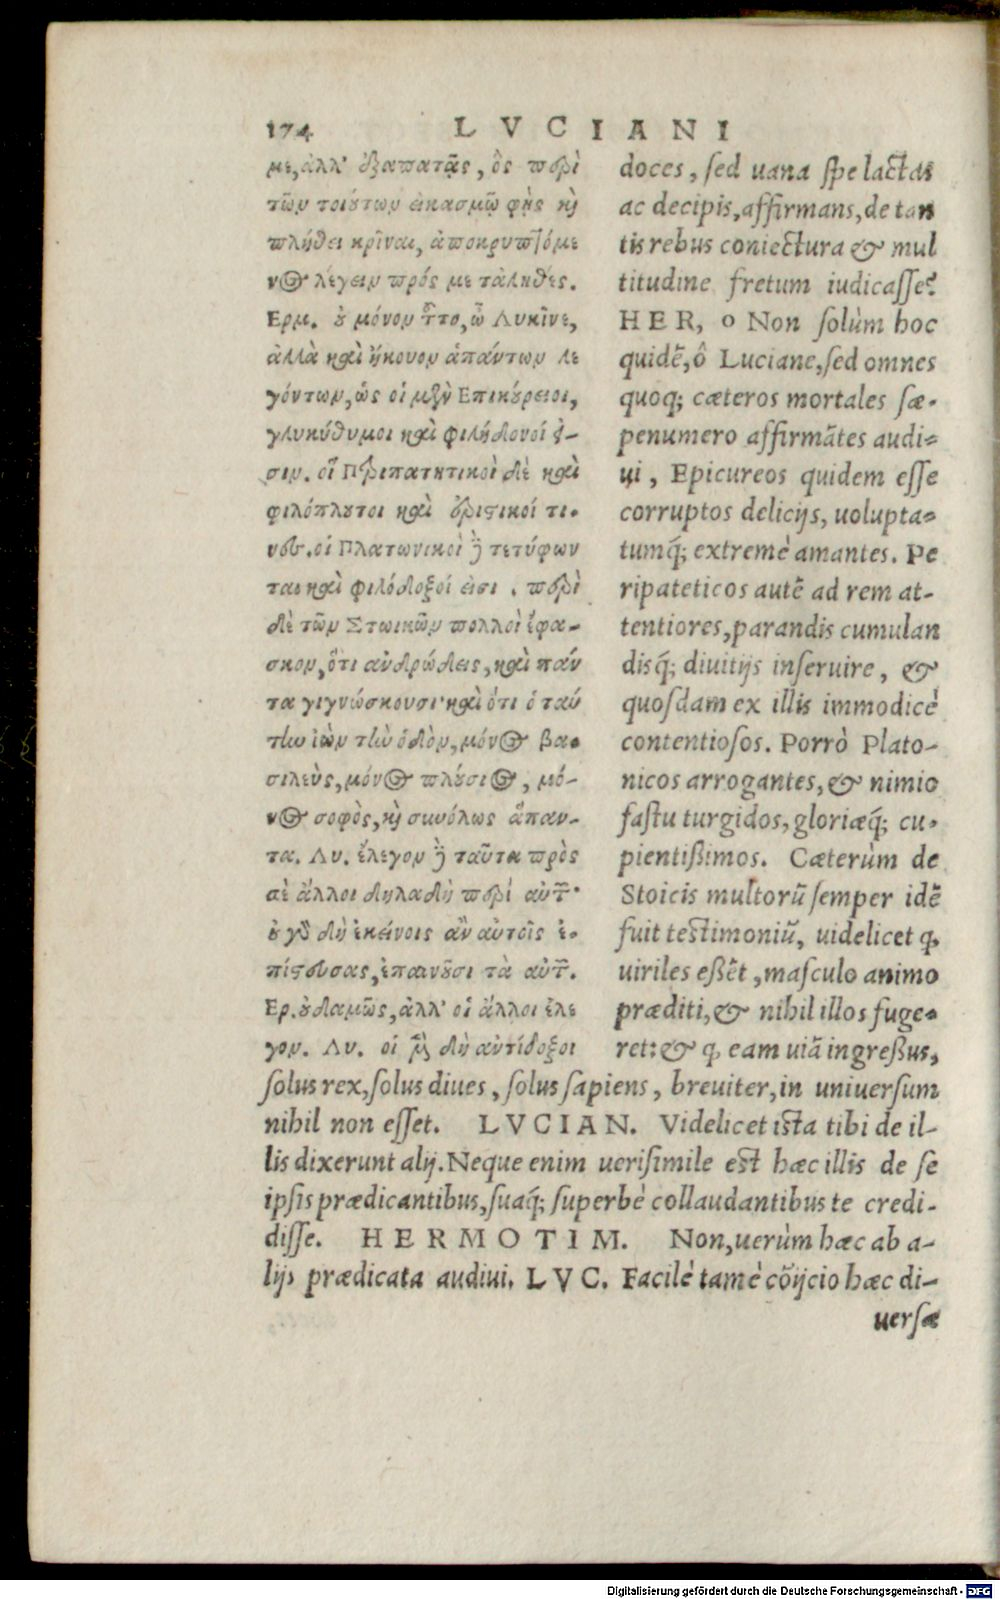 174 LVCIANI
με, ἀλλ' ἐξαπατᾷς, ὃς περὶ
τῶν τοιούτων εἰκασμῷ φῂς κὶ
πλήθει κρῖναι, ἀποκρυπτόμε
νος λέγειν πρός με τἀληθές.
Ερμ. οὐ μόνον τοῦτο, ὦ Λυκῖνε,
ἀλλὰ καὶ ἤκουον ἁπάντων λε
γόντων, ὡς οἱ μὲν Επικούρειοι,
γλυκύθυμοι καὶ φιλήδονοί ἐ-
σιν. οἱ Περιπατητικοὶ δὲ καὶ
φιλόπλουτοι καὶ ἐριστικοί τι-
νες. οἱ Πλατωνικοὶ δὲ τετύφων
ται καὶ φιλόδοξοί εἰσι. περὶ
δὲ τῶν Στωικῶν πολλοὶ ἔφα-
σκον, ὅτι ἀνδρώδεις, καὶ πάν
τα γιγνώσκουσι· καὶ ὅτι ὁ ταύ
την ἰὼν τὴν ὁδὸν, μόνος βα-
σιλεὺς, μόνος πλούσιος, μό-
νος σοφὸς, κὶ συνόλως ἅπαν-
τα. Λυ. ἔλεγον δὲ ταῦτα πρὸς
σὲ ἄλλοι δηλαδὴ περὶ αὐτῶν·
οὐ γὰρ δὴ ἐκείνοις ἂν αὐτοῖς ἐ-
πίστευσας, ἐπαινοῦσι τὰ αὐτῶν.
Ερ. οὐδαμῶς, ἀλλ' οἱ ἄλλοι ἔλε
γον. Λυ. οἱ μὲν δὴ ἀντίδοξοι
doces, sed uana spe lactas
ac decipis, affirmans, de tan
tis rebus coniectura & mul
titudine fretum iudicasse?
HER, o Non solùm hoc
quidē, ô Luciane, sed omnes
quoq; cæteros mortales sæ-
penumero affirmātes audi-
ui, Epicureos quidem esse
corruptos delicijs, uolupta-
tumq́; extremè amantes. Pe
ripateticos autē ad rem at-
tentiores, parandis cumulan
disq́; diuitijs inseruire, &
quosdam ex illis immodicè
contentiosos. Porrò Plato-
nicos arrogantes, & nimio
fastu turgidos, gloriæq́; cu-
pientißimos. Cæterùm de
Stoicis multorū semper idē
fuit testimoniū, uidelicet q,
uiriles eßēt, masculo animo
præditi, & nihil illos fuge-
ret: & q, eam uiā ingreßus,
solus rex, solus diues, solus sapiens, breuiter, in uniuersum
nihil non esset. LVCIAN. Videlicet ista tibi de il-
lis dixerunt alij. Neque enim uerisimile est hæc illis de se
ipsis prædicantibus, suaq́; superbè collaudantibus te credi-
disse. HERMOTIM. Non, uerùm hæc ab a-
lijs prædicata audiui. LVC. Facilè tamē cōijcio hæc di-
uersæ
Digitalisierung gefördert durch die Deutsche Forschungsgemeinschaft - DFG